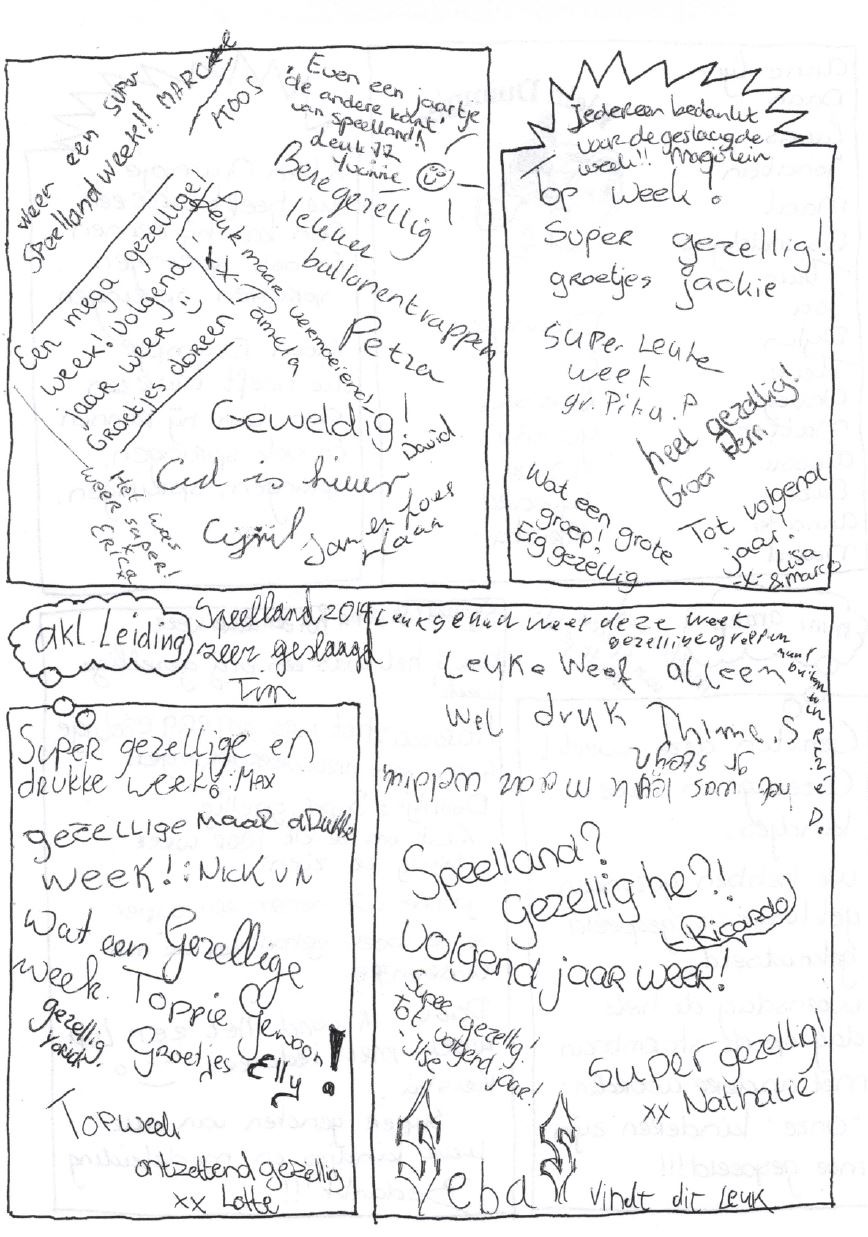 weer een super
Speelland week!! MARCEL
KOOS
Even een jaartje
'de andere kant'
van speelland!
Leuk!!
Yvonne
Beregezellig
lekker
ballonentrappen
Petra
Leuk maar vermoeiend!
xx-Pamela
Een mega gezellige
week! Volgend
jaar weer :)
Groetjes doreen
Geweldig!
David
Cyril
Jan en Loes
Het was
weer super!
xx
Erica
Jedereen bedankt
voor de geslaagde
week!! Marjolein
Top week!
Super gezellig!
groetjes jackie
Super Leuke
week
gr. Pika.P
heel gezellig!
Groer
Wat een grote
groep!
Erg gezellig
Tot volgend
jaar.
-x- Lisa
& marco
akl Leiding
Speelland 2014
zeer geslaagd
Tim
Super gezellige en
drukke week! :Max
gezellige maar drukke
week! :Nick v N
Wat een Gezellige
week. Toppie Gewoon!
Groetjes Elly
gezellig
Topweek
ontzettend gezellig
xx Lotte
Leuk gehad weer deze week
gezellige groepen
Leuke Week alleen
wel druk Thimo S
het was leuk maar
gr stefan
Speelland?
Gezellig he?!
Ricardo
volgend jaar weer!
Super gezellig!
tot volgend jaar!
Ilse
Super gezellig!
xx Nathalie
Yeba vindt dit leuk